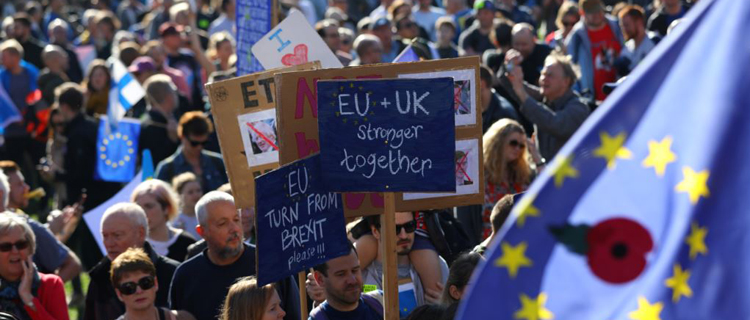 I
ET
EU + UK
stronger
together
EU
TURN FROM
BREXIT
please!!!